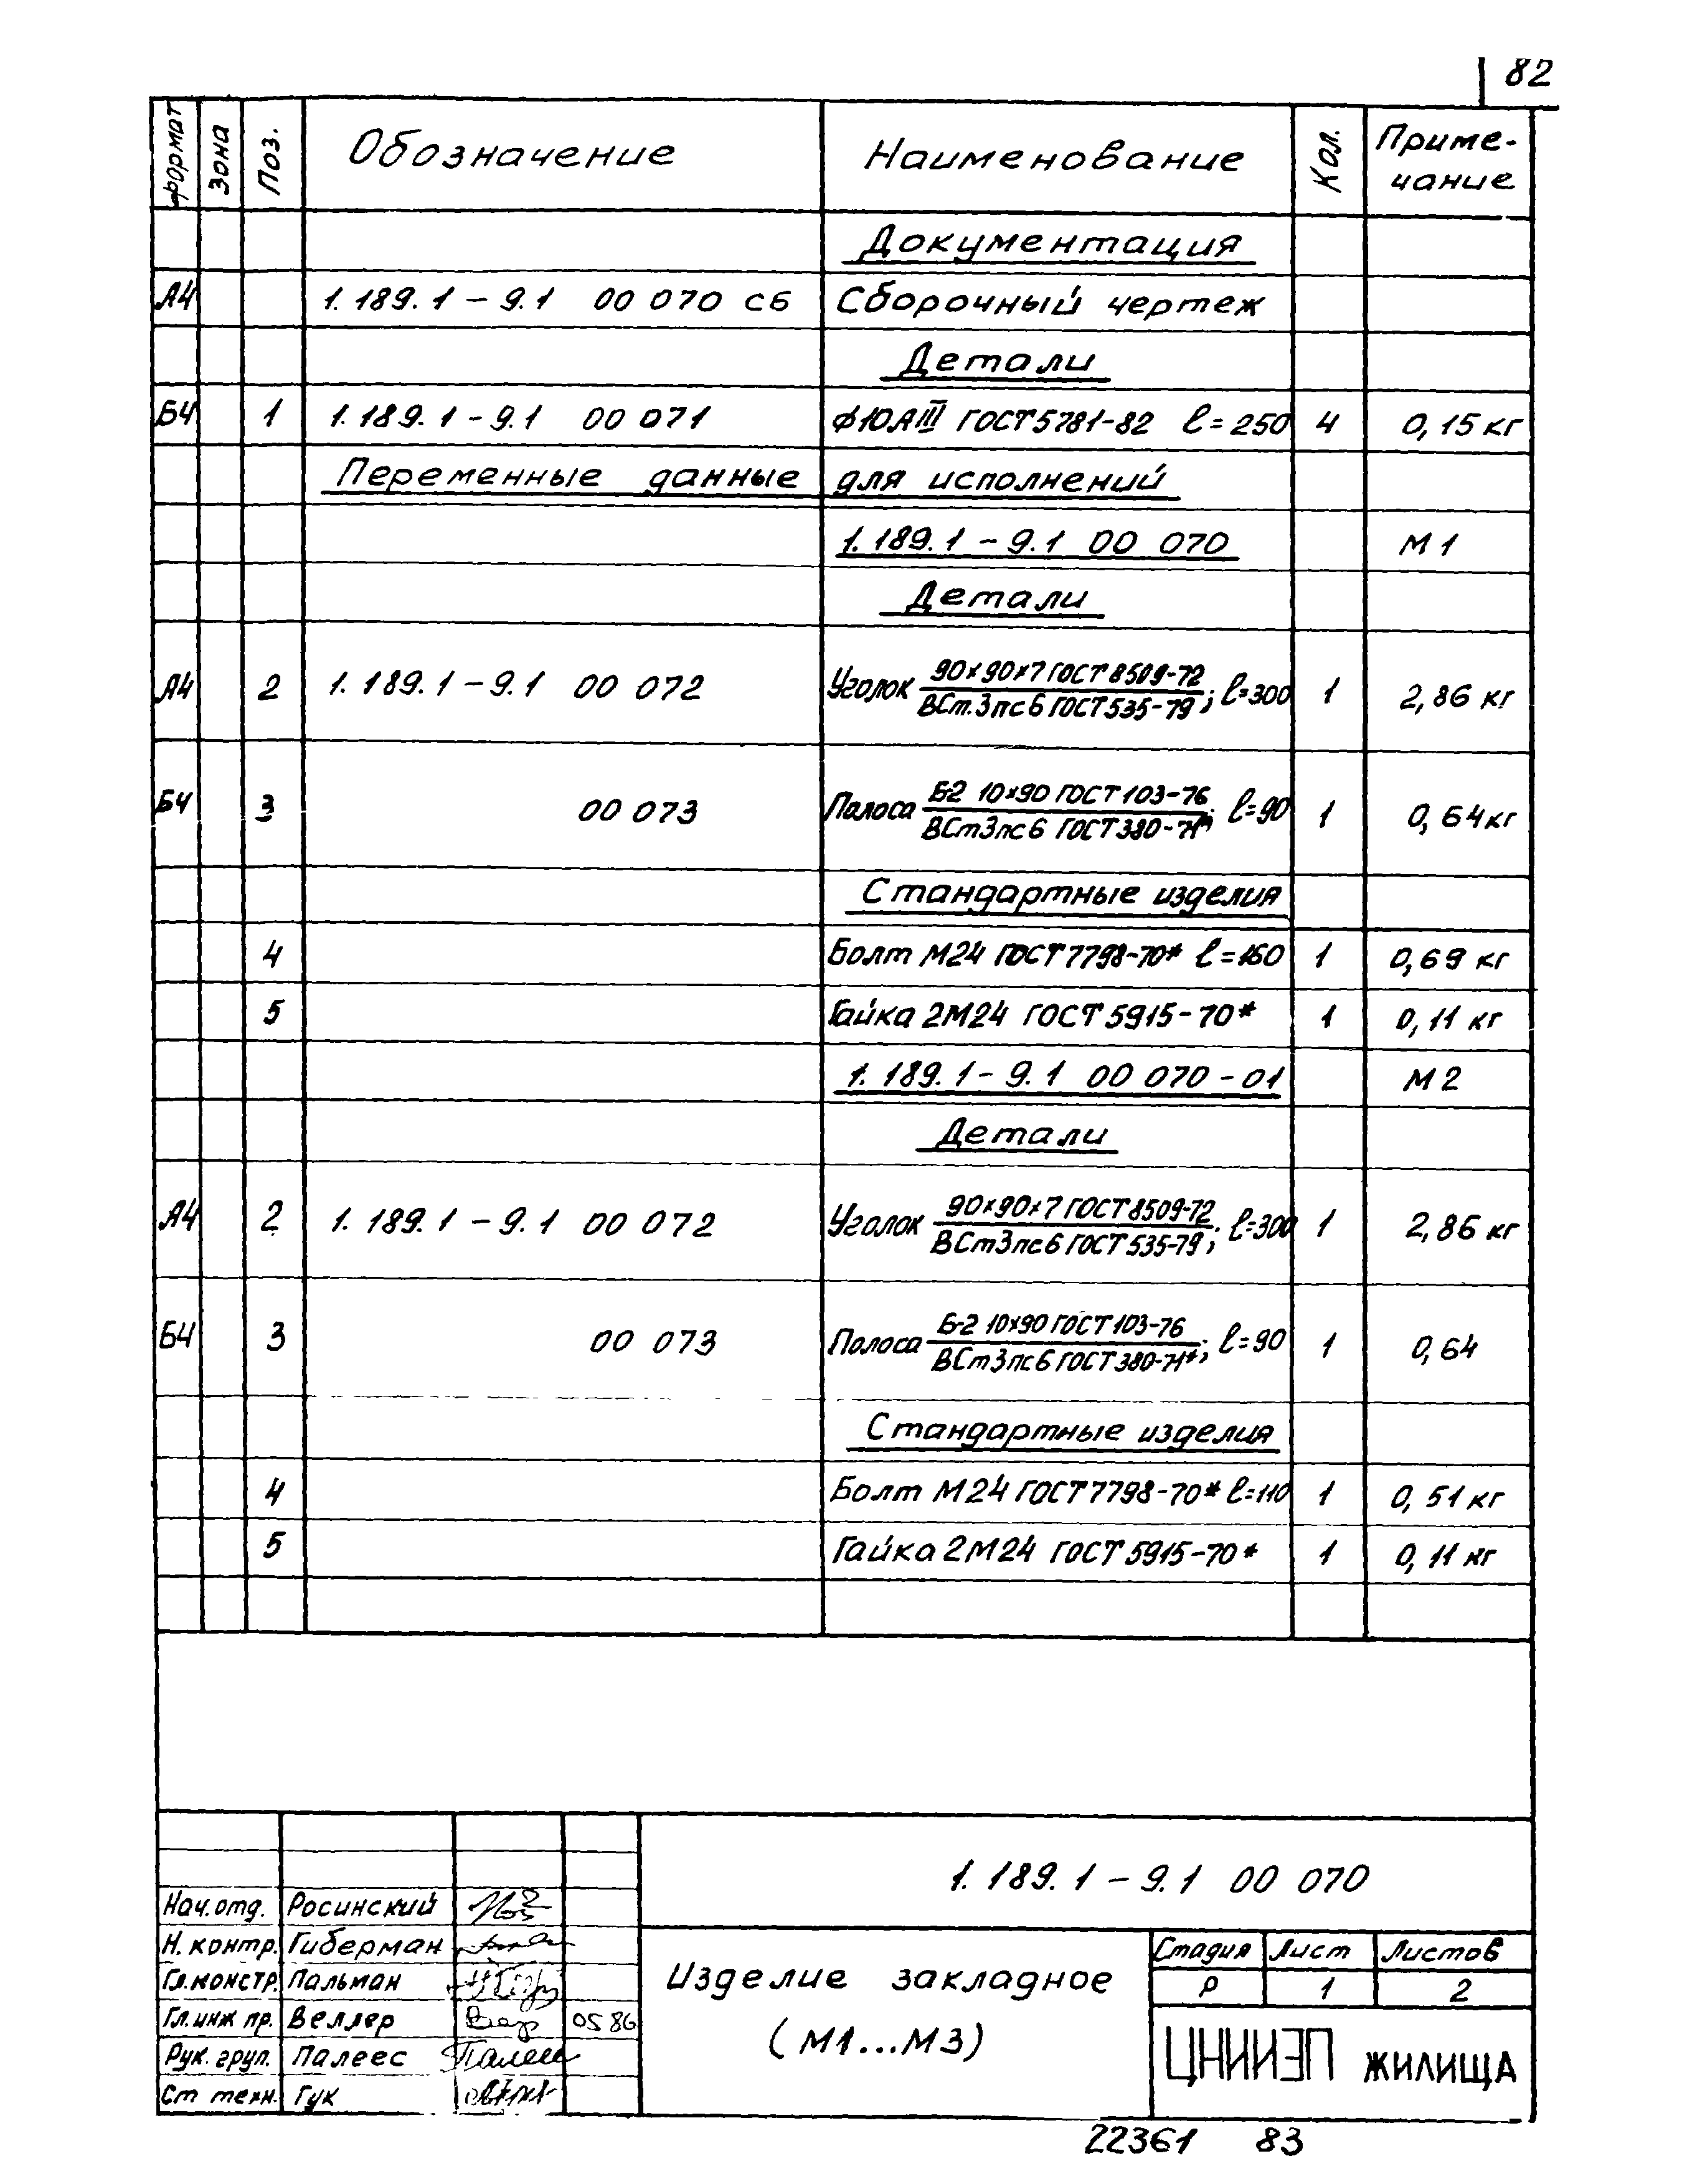 82
Формат Зона Поз. Обозначение Наименование Кол. Приме-
чание
Документация
А4 1.189.1-9.1 00 070 СБ Сборочный чертеж
Детали
Б4 1 1.189.1-9.1 00 071 ф10АIII ГОСТ5781-82 ℓ=250 4 0,15 кг
Переменные данные для исполнений
1.189.1-9.1 00 070 М1
Детали
90×90×7 ГОСТ 8509-72
А4 2 1.189.1-9.1 00 072 Уголок ; ℓ=300 1 2,86 кг
ВСт.3пс6 ГОСТ535-79
Б-2 10×90 ГОСТ 103-76
Б4 3 00 073 Полоса ; ℓ=90 1 0,64кг
ВСт3пс6 ГОСТ380-71*
Стандартные изделия
4 Болт М24 ГОСТ7798-70* ℓ=160 1 0,69 кг
5 Гайка 2М24 ГОСТ5915-70* 1 0,11 кг
1.189.1-9.1 00 070-01 М2
Детали
90×90×7 ГОСТ8509-72
А4 2 1.189.1-9.1 00 072 Уголок ; ℓ=300 1 2,86 кг
ВСт3пс6 ГОСТ535-79
Б-2 10×90 ГОСТ103-76
Б4 3 00 073 Полоса ; ℓ=90 1 0,64
ВСт3пс6 ГОСТ380-71*
Стандартные изделия
4 Болт М24 ГОСТ7798-70* ℓ=110 1 0,51кг
5 Гайка 2М24 ГОСТ5915-70* 1 0,11 кг
1.189.1-9.1 00 070
Нач.отд. Росинский
Н.контр. Гиберман
Гл.констр. Пальман
Гл.инж пр. Веллер 05 86
Рук.груп. Палеес
Ст техн. Гук
Изделие закладное
(М1...М3)
Стадия Лист Листов
Р 1 2
ЦНИИЭП жилища
22361 83